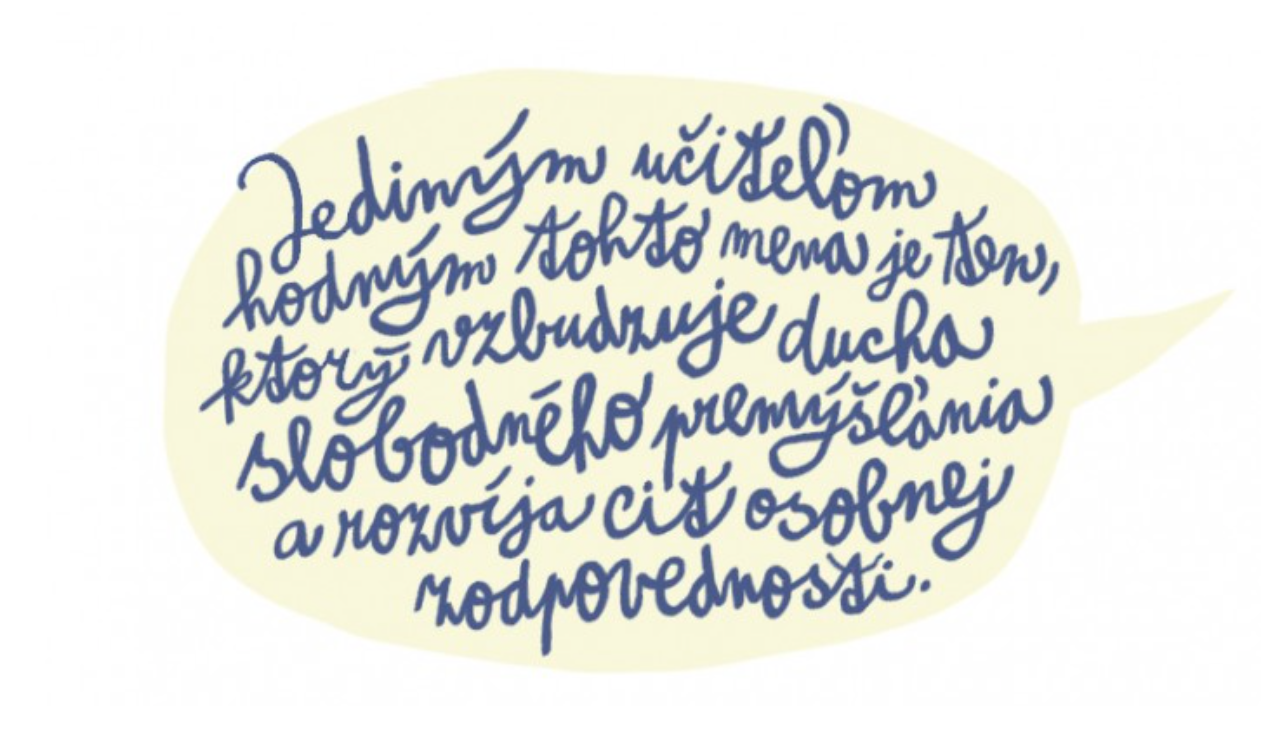 Jediným učiteľom
hodným tohto mena je ten,
ktorý vzbudzuje ducha
slobodného premýšľania
a rozvíja cit osobnej
zodpovednosti.